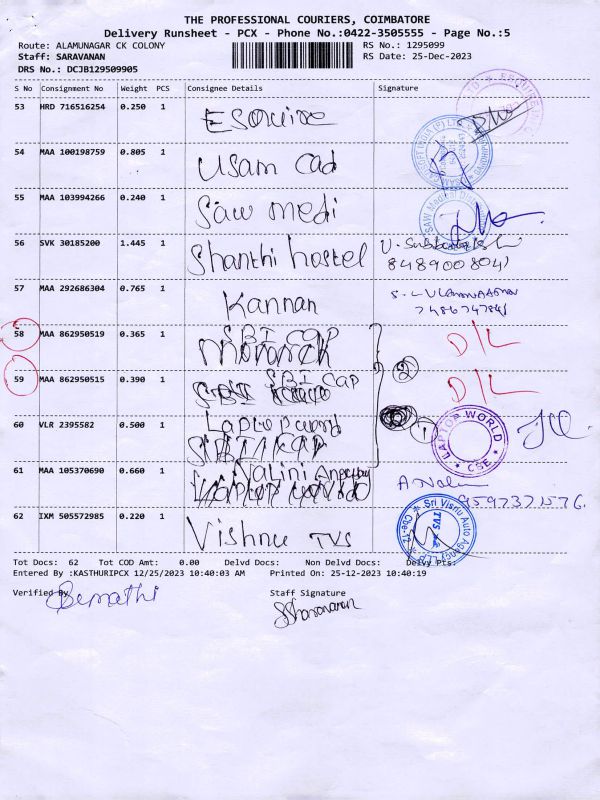 THE PROFESSIONAL COURIERS, COIMBATORE
Delivery Runsheet - PCX - Phone No.:0422-3505555 - Page No.:5
Route: ALAMUNAGAR CK COLONY
RS No.: 1295099
Staff: SARAVANAN
RS Date: 25-Dec-2023
DRS No.: DCJB129509905
S No Consignment No Weight PCS Consignee Details Signature
53 HRD 716516254 0.250 1 Esquire
54 MAA 100198759 0.805 1 Usam Cad
55 MAA 103994266 0.240 1 Saw medi
56 SVK 30185200 1.445 1 Shanthi hostel
8489008041
57 MAA 292686304 0.765 1 Kannan
58 MAA 862950519 0.365 1 SBI CAP D/L
59 MAA 862950515 0.390 1 SBI Cap D/L
60 VLR 2395582 0.500 1 LAPTOP WORLD CSE
61 MAA 105370690 0.660 1 Nalini
62 IXM 505572985 0.220 1 Vishnu TVS
Tot Docs: 62 Tot COD Amt: 0.00 Delvd Docs: Non Delvd Docs: Delvy Pts:
Entered By :KASTHURIPCX 12/25/2023 10:40:03 AM Printed On: 25-12-2023 10:40:19
Verified By
Staff Signature